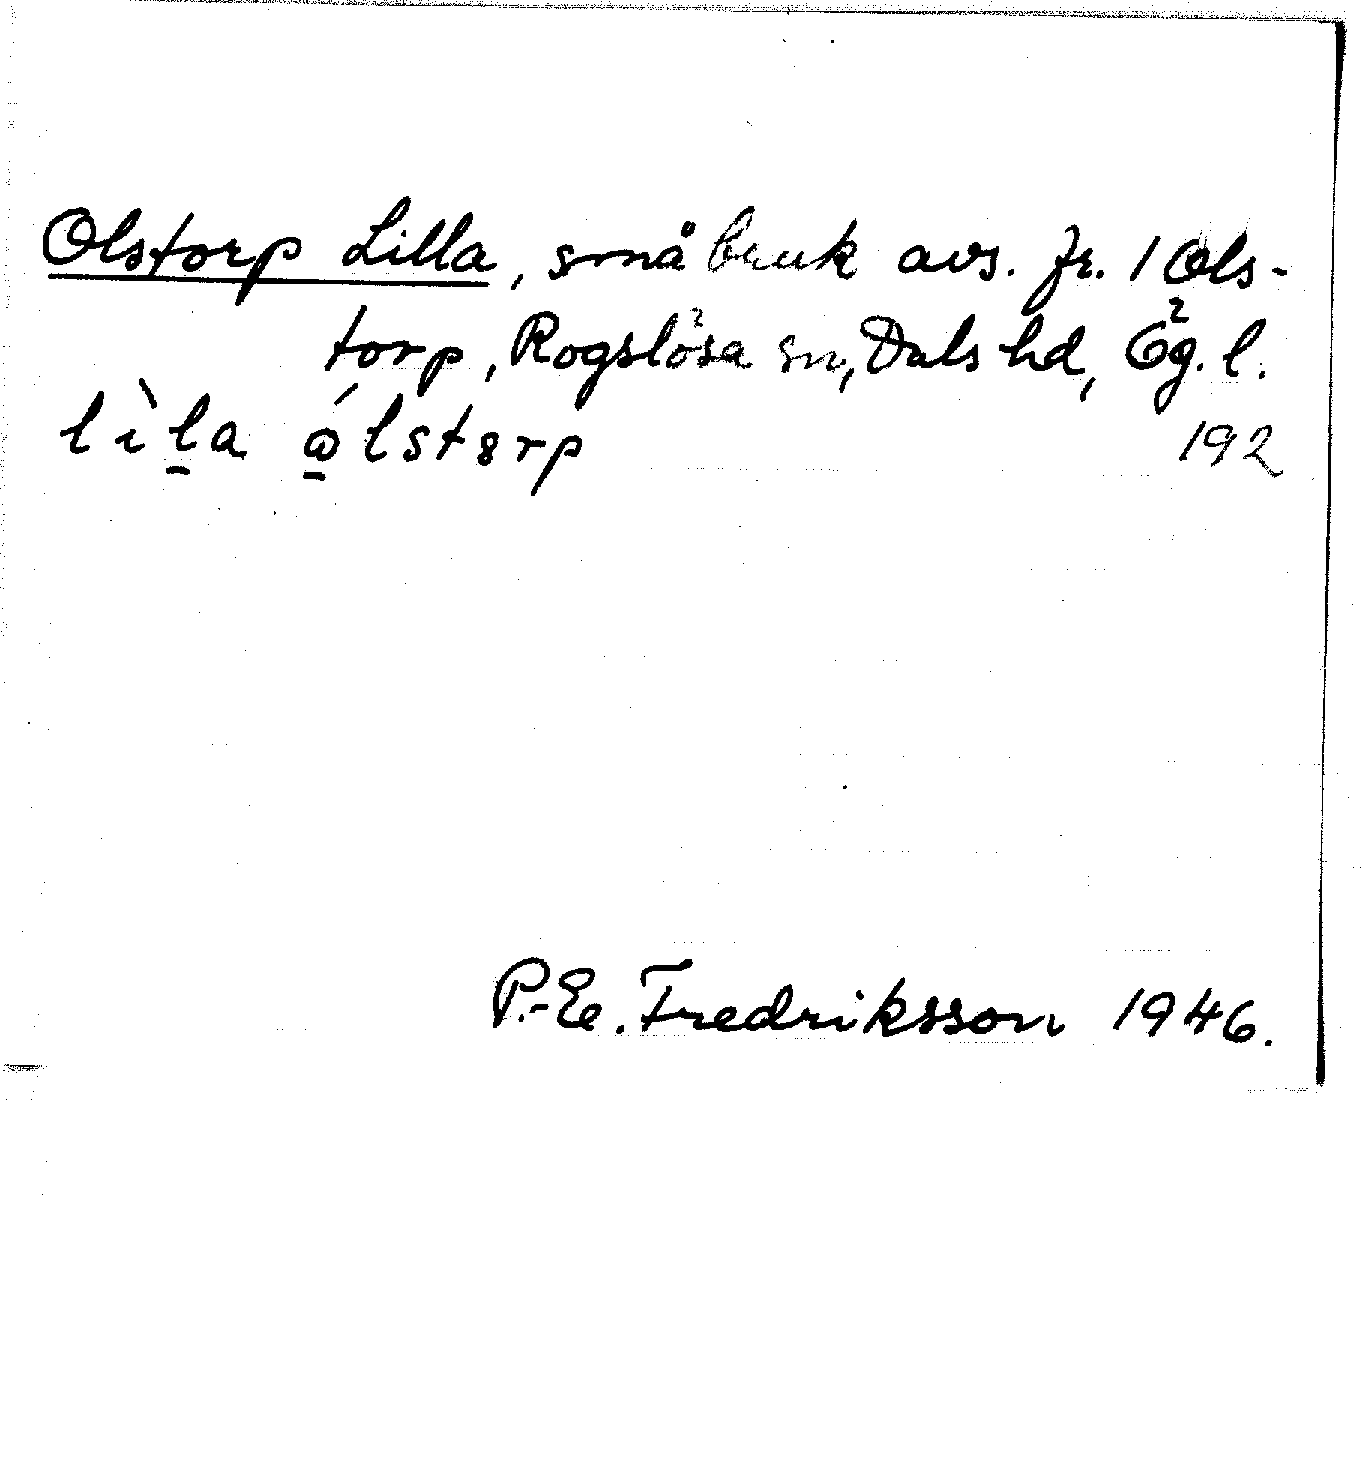 Olstorp Lilla, småbruk avs. fr. 1 Ols-
torp, Rogslösa sn, Dals hd, Ög. l.
lìḻa ó̱lstɘrp 192
P.-E. Fredriksson 1946.